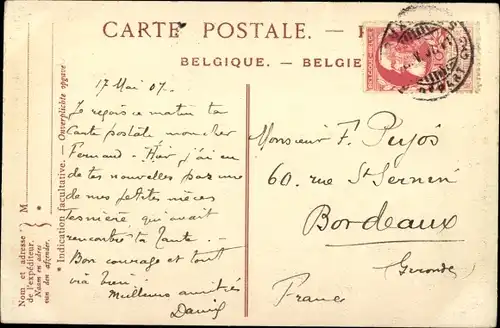 CARTE POSTALE. — P
BELGIQUE. — BELGIE
17 Mai 07.
Je reçois ce matin ta
Carte postale mon cher
Fernand – Hier, j'ai eu
de tes nouvelles par une
de mes petites nièces
qui avait
rencontré ta Tante. –
Bon courage et tout
ira bien!
Meilleures amitiés
Monsieur F. Pujos
60. rue St Sernin
Bordeaux
Gironde
France
* Indication facultative. — Onverplichte opgave.
M
*
Nom et adresse
de l'expéditeur.
Naam en adres
van den afzender.